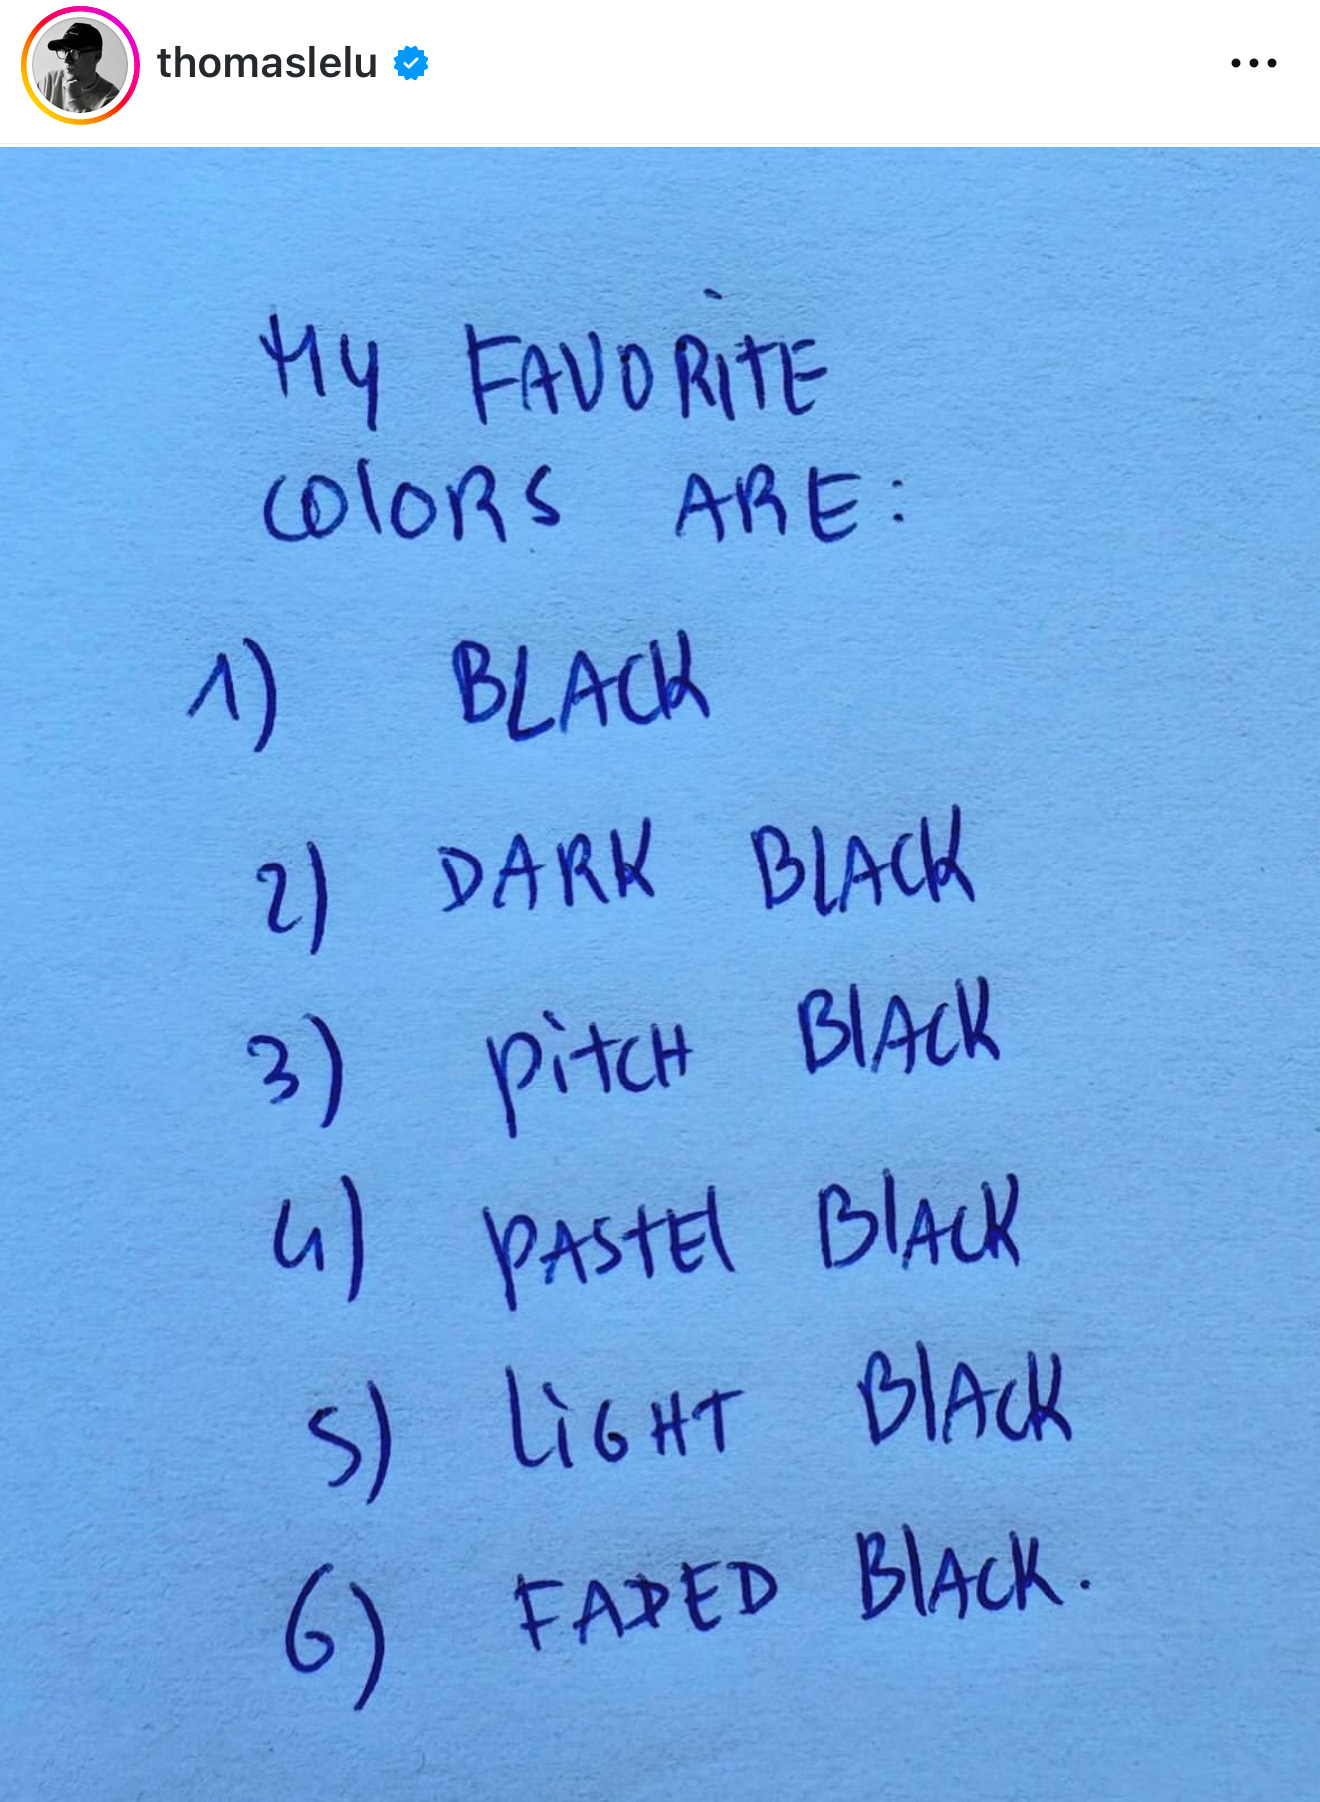 thomaslelu
MY FAVORITE
COlORS ARE:
1) BLACK
2) DARK BLACK
3) PiTCH BlACK
4) PASTEl BlACK
5) LiGHT BlACK
6) FADED BlACK.